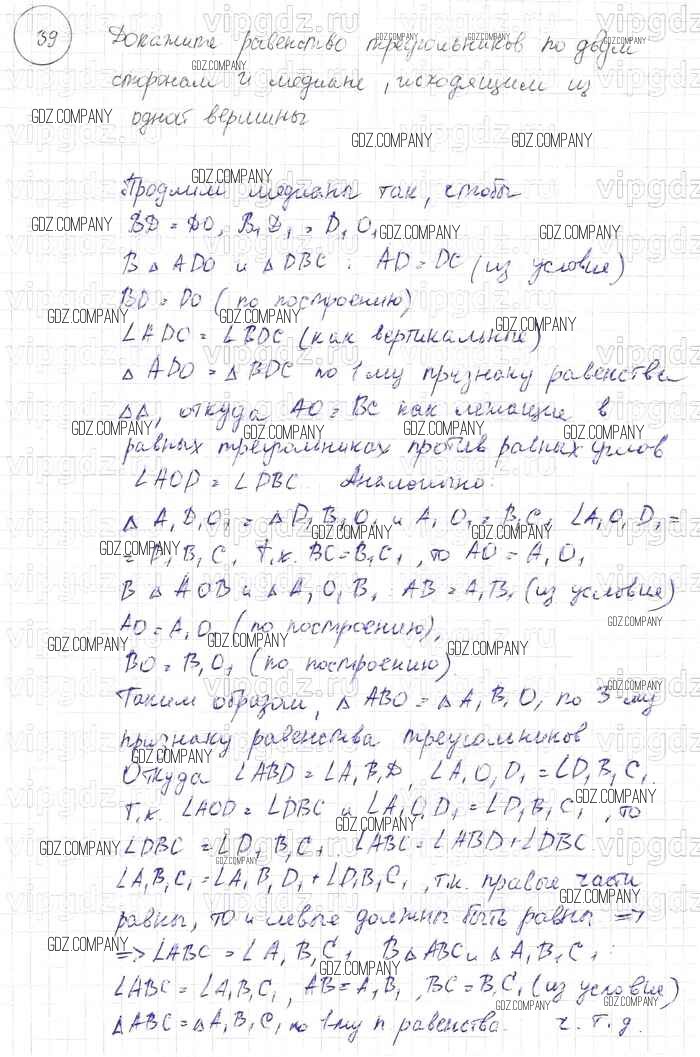 39 Докажите равенство треугольников по двум
сторонам и медиане, исходящим из
одной вершины
Продлим медианы так, чтобы
BD = DO, B₁D₁ = D₁O₁
В △ ADO и △ DBC : AD = DC (из условие)
BD = DO (по построению)
∠ADO = ∠BDC (как вертикальные)
△ ADO = △ BDC по 1му признаку равенства
△△, откуда AO = BC как лежащие в
равных треугольниках против равных углов
∠AOD = ∠DBC Аналогично:
△ A₁D₁O₁ = △ D₁B₁O₁ и A₁O₁ = B₁C₁ ∠A₁O₁D₁ =
= D₁B₁C₁ т.к. BC = B₁C₁, то AO = A₁O₁
В △ AOB и △ A₁O₁B₁ : AB = A₁B₁ (из условие)
AO = A₁O₁ (по построению),
BO = B₁O₁ (по построению).
Таким образом, △ ABO = △ A₁B₁O₁ по 3-му
признаку равенства треугольников
Откуда ∠ABD = ∠A₁B₁D, ∠A₁O₁D₁ = ∠D₁B₁C₁.
т.к. ∠AOD = ∠DBC и ∠A₁O₁D₁ = ∠D₁B₁C₁, то
∠DBC = ∠D₁B₁C₁. ∠ABC = ∠ABD + ∠DBC
∠A₁B₁C₁ = ∠A₁B₁D₁ + ∠D₁B₁C₁, т.к. правые части
равны, то и левые должны быть равны =>
=> ∠ABC = ∠A₁B₁C₁ В △ ABC и △ A₁B₁C₁ :
∠ABC = ∠A₁B₁C₁, AB = A₁B₁, BC = B₁C₁ (из условие)
△ABC = △A₁B₁C₁ по 1му п равенства. ч.т.д.